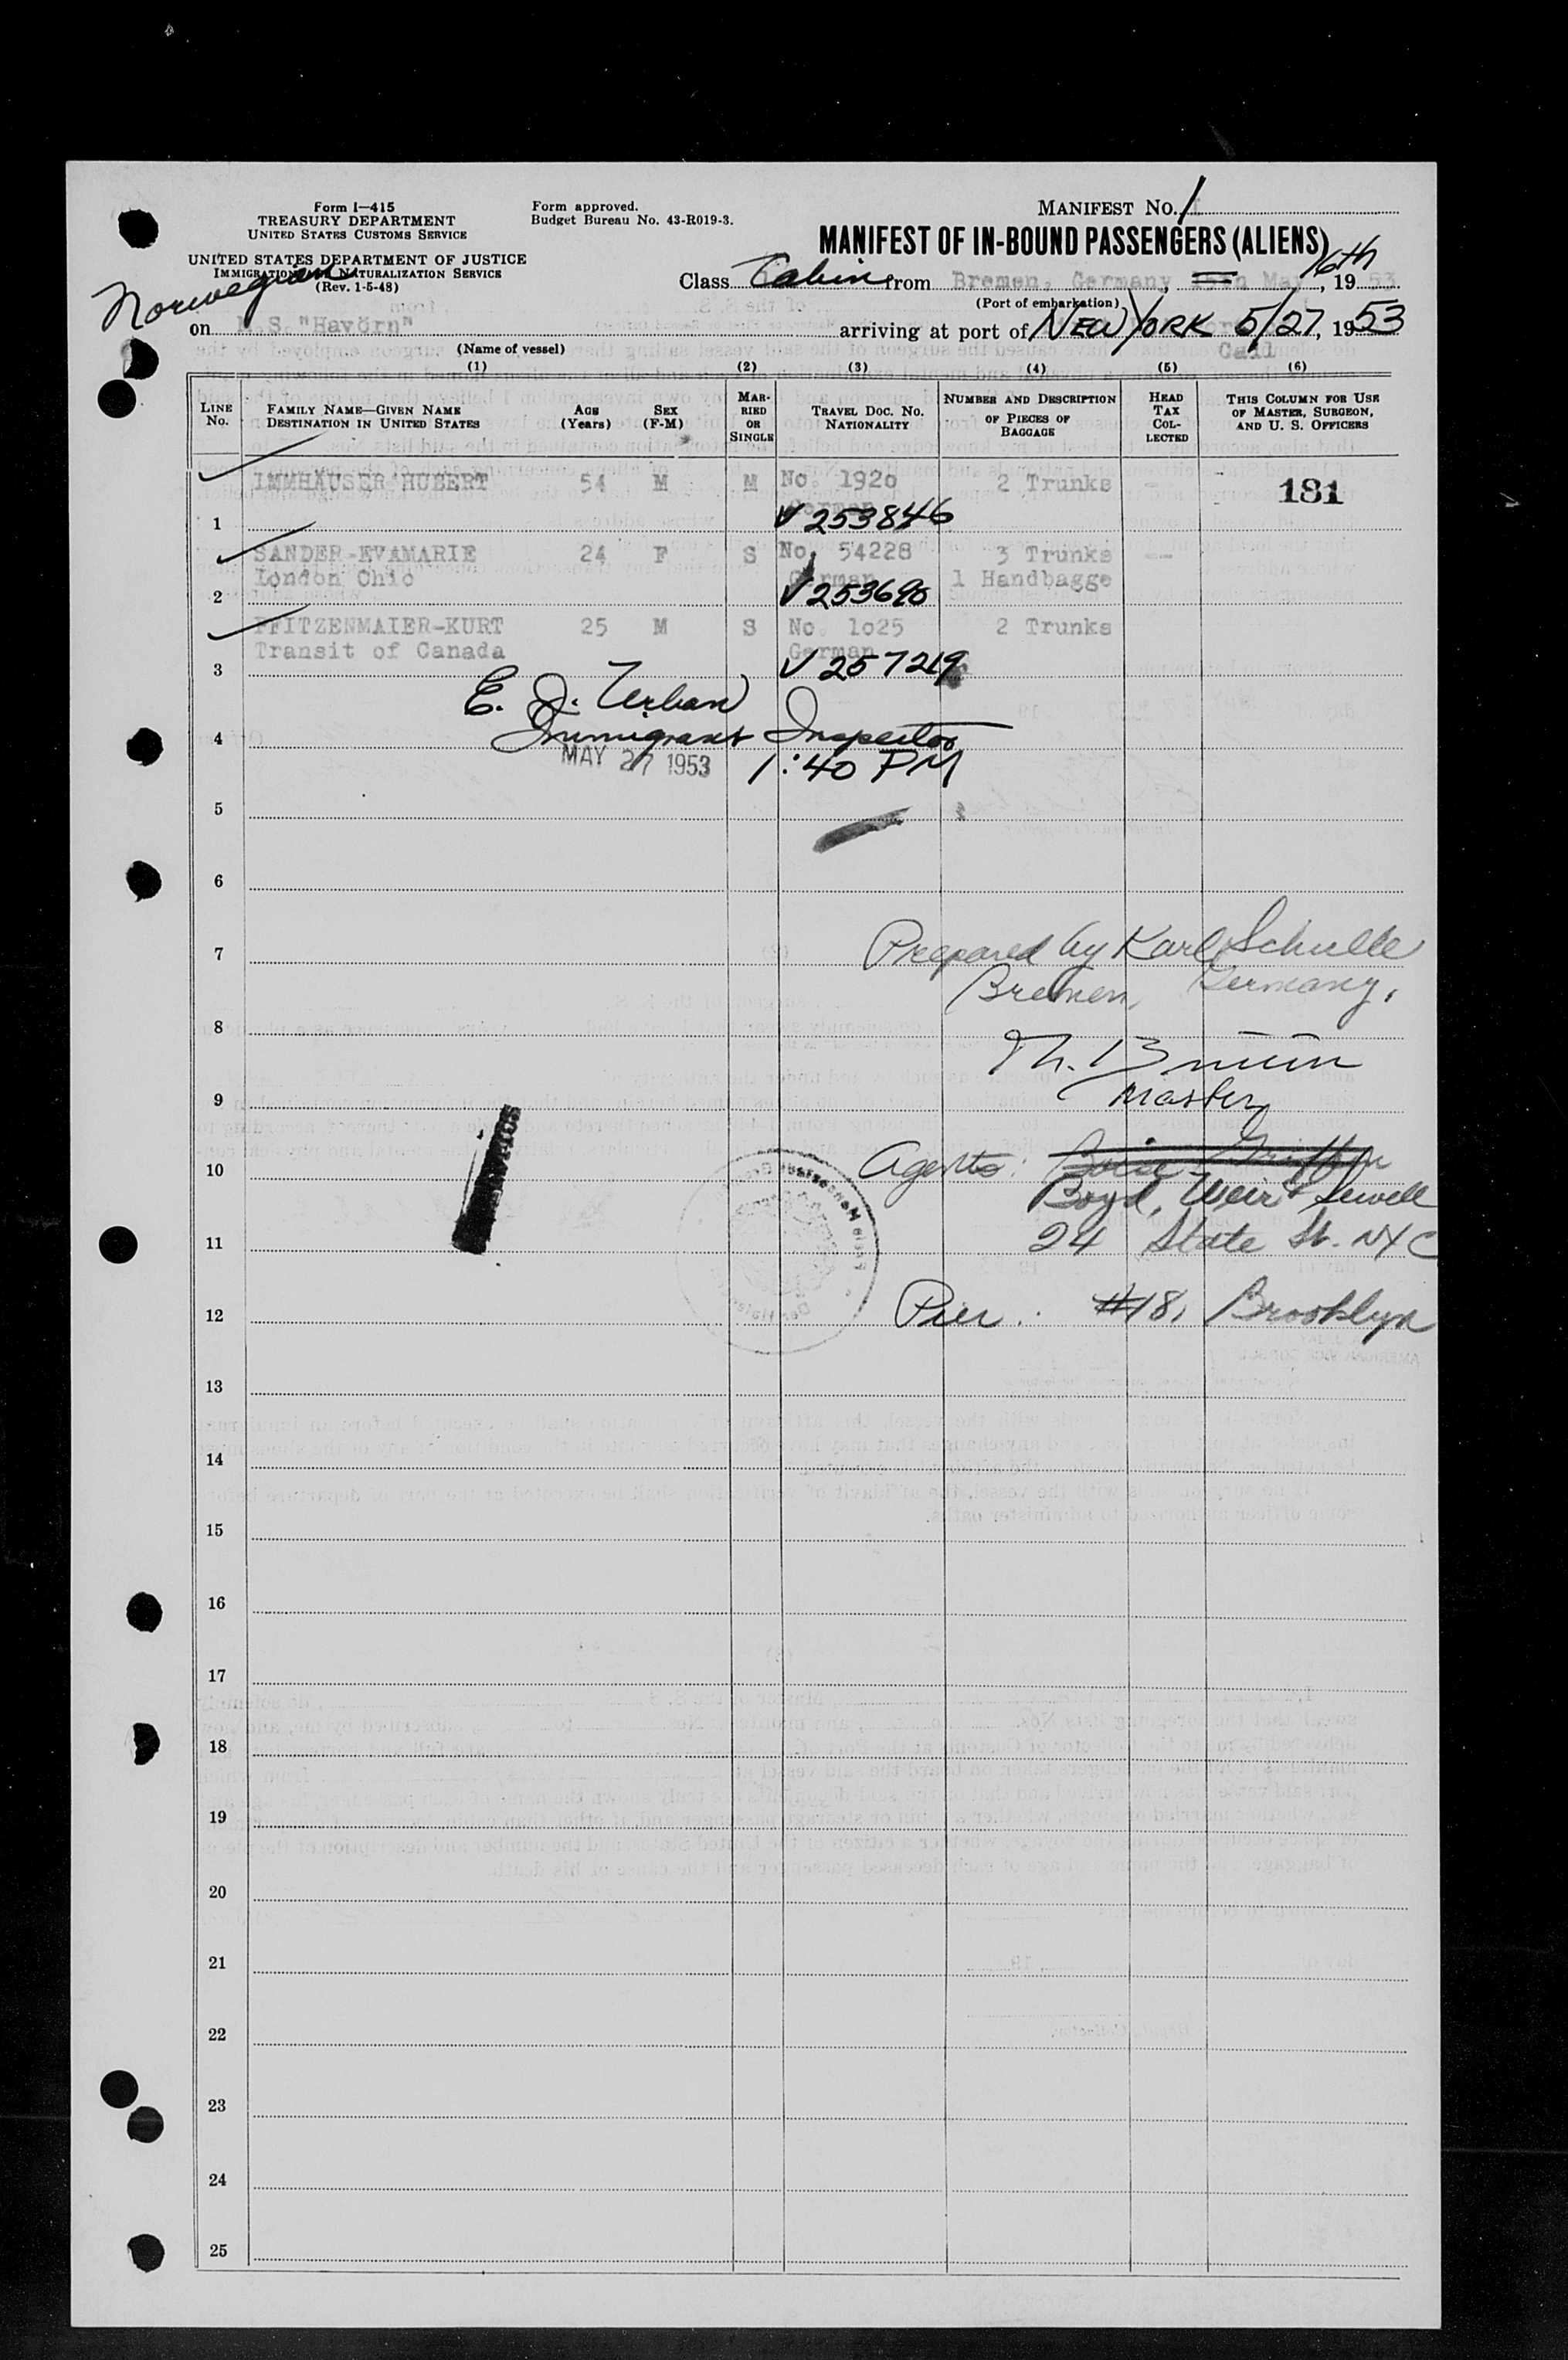 Form I—415
TREASURY DEPARTMENT
UNITED STATES CUSTOMS SERVICE
UNITED STATES DEPARTMENT OF JUSTICE
IMMIGRATION AND NATURALIZATION SERVICE
(Rev. 1-5-48)
Form approved.
Budget Bureau No. 43-R019-3.
MANIFEST NO. 1
MANIFEST OF IN-BOUND PASSENGERS (ALIENS)
Norwegian
Class Cabin from Bremen, Germany, May 16th, 1953
(Port of embarkation)
on M.S. "Havörn" arriving at port of NEW YORK 5/27, 1953
(Name of vessel)
(1) (2) (3) (4) (5) (6)
LINE No.
FAMILY NAME—GIVEN NAME DESTINATION IN UNITED STATES
AGE (Years)
SEX (F-M)
MARRIED OR SINGLE
TRAVEL DOC. NO. NATIONALITY
NUMBER AND DESCRIPTION OF PIECES OF BAGGAGE
HEAD TAX COLLECTED
THIS COLUMN FOR USE OF MASTER, SURGEON, AND U. S. OFFICERS
IMMHÄUSER HUBERT 54 M M No. 1920 2 Trunks - 181
German
1 V 253846
SANDER-EVAMARIE 24 F S No. 54228 3 Trunks --
London Ohio German 1 Handbagge
2 V 253690
PFITZENMAIER-KURT 25 M S No. 1025 2 Trunks
Transit of Canada German
3 V 257219
E. J. Urban
4 Immigrant Inspector
MAY 27 1953 1:40 PM
5
6
7 Prepared by Karl Schulle
Bremen, Germany.
8
Master
9
10 Agents: Boise-Griffin
Boyd, Weir & Sewell
11 24 State St. NYC
12 Pier: #18, Brooklyn
13
14
15
16
17
18
19
20
21
22
23
24
25